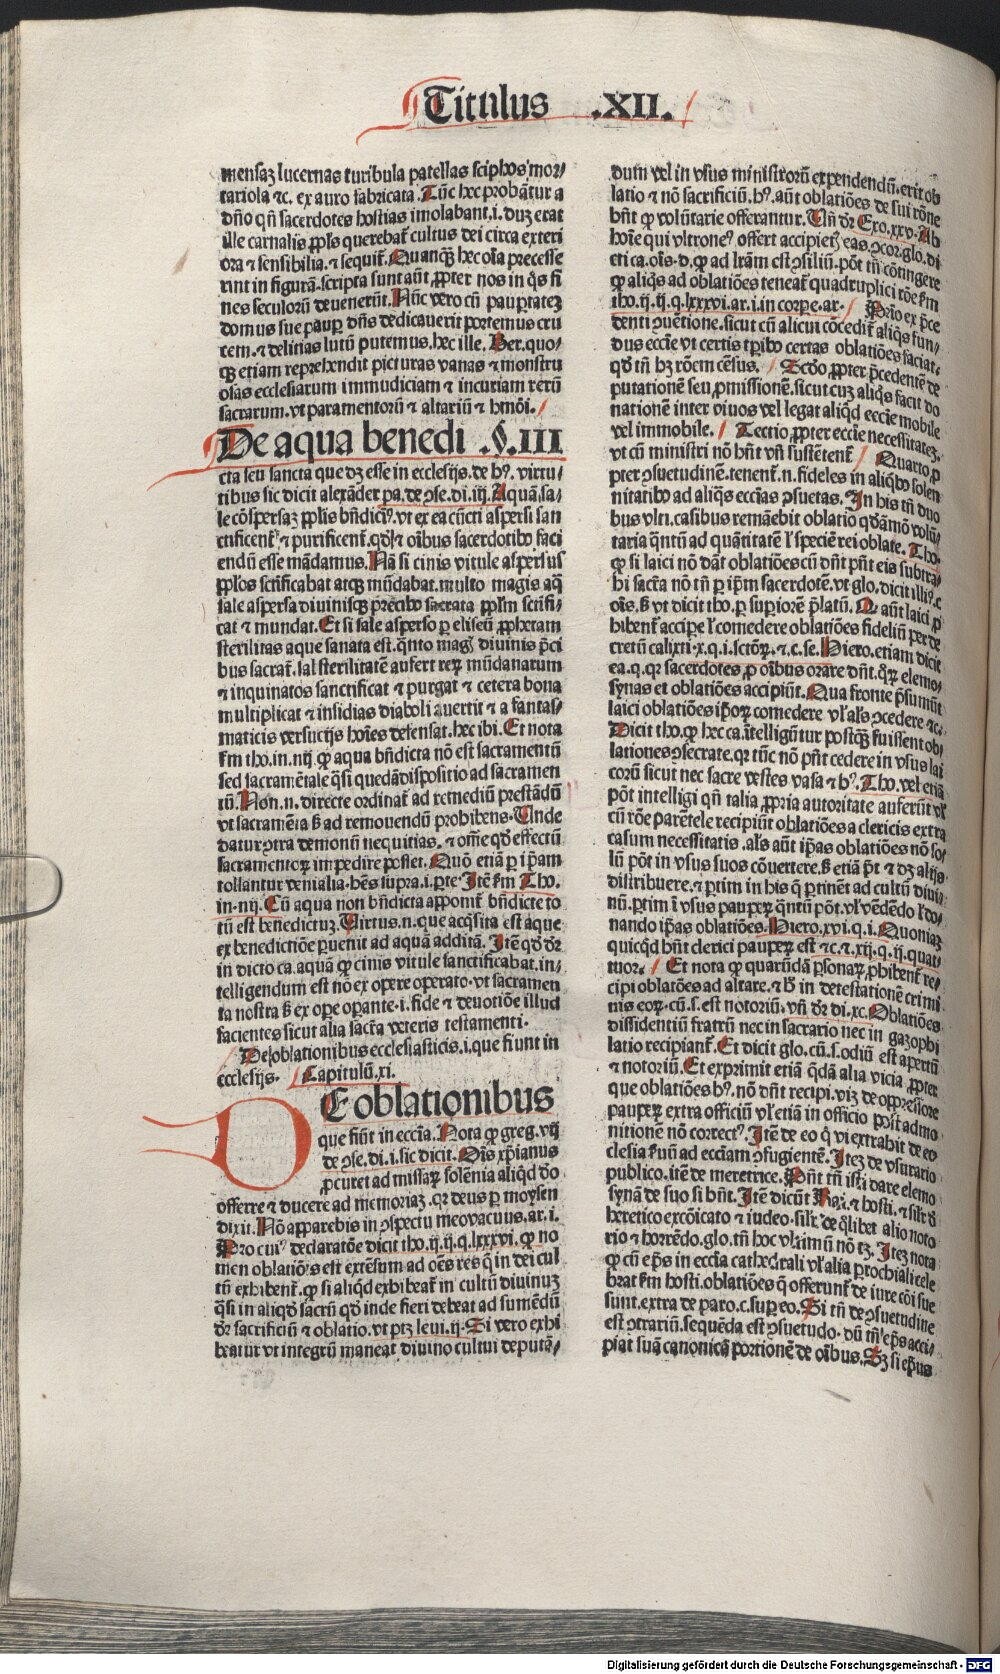 Titulus .XII.
mensaꝫ lucernas turibula patellas sciphos mor/
tariola ⁊c. ex auro fabricata. Tūc hec probātur a
dn̄o qn̄ sacerdotes hostias imolabant.i. duꝫ erat
ille carnalis ppl̄s querebat̄ cultus dei circa exteri
ora ⁊ sensibilia. ⁊ sequit̄. Quanqꝫ hec oīa precesse
rint in figurā. scripta sunt aūt ꝓpter nos in q̇s fi
nes seculorū deuenerūt. Nūc vero cū paupertateꝫ
domus sue pauꝑ dn̄s dedicauerit portemus cru
cem. ⁊ delitias lutū putemus. hec ille. Ber. quo/
qꝫ etiam reprehendit picturas vanas ⁊ monstru
osas ecclesiarum immudiciam ⁊ incuriam rerū
sacrarum. vt paramentorū ⁊ altariū ⁊ hmōi.
De aqua benedi .§.III
cta seu sancta que dꝫ esse in ecclesijs. de hꝰ. virtu/
tibus sic dicit alexāder pa. de ↄse. di. iij. Aquā. sa/
le cōspersaꝫ ppl̄is bn̄dicimꝰ. vt ex ea cūcti aspersi san
ctificent̄ ⁊ purificent̄. qd̄ ⁊ oībus sacerdotibꝰ faci
endū esse mādamus. Nā si cinis vitule aspersus
ppl̄os sctīficabat atqꝫ mūdabat. multo magis aq̄
sale aspersa diuinisqꝫ precibꝰ sacrata ppl̄m sctīfi/
cat ⁊ mundat. Et si sale asperso ꝑ eliseū ꝓphetam
sterilitas aque sanata est. q̄nto magꝭ diuinis p̄ci
bus sacrat̄. sal sterilitatē aufert reꝝ mūdanarum
⁊ inquinatos sanctificat ⁊ purgat ⁊ cetera bona
multiplicat ⁊ insidias diaboli auertit ⁊ a fantas/
maticis versucijs hoīes defensat. hec ibi. Et nota
fm tho. in. iiij. ꝙ aqua bn̄dicta nō est sacramentū
sed sacramētale q̄si quedā dispositio ad sacramen
tū. Non .n. directe ordinat̄ ad remediū prestādū
vt sacramēta ß ad remouendū prohibens. Unde
datur ↄtra demonū nequitias. ⁊ om̄e qd̄ effectū
sacramentoꝝ impedire posset. Quō etiā ꝑ ip̄am
tollantur venialia. hēs supra. i. ꝑte. Itē fm Tho.
in. iiij. Cū aqua non bn̄dicta apponit̄ bn̄dicte to
tū est benedictuꝫ. Uirtus .n. que acq̄sita est aque
ex benedictiōe ꝑuenit ad aquā additā. Itē qd̄ dr̄
in dicto ca. aquā ꝙ cinis vitule sanctificabat. in/
telligendum est nō ex opere operato. vt sacramen
ta nostra ß ex oꝑe oꝑante .i. fide ⁊ deuotiōe illud
facientes sicut alia sacra veteris testamenti.
De oblationibus ecclesiasticis. i. que fiunt in
ecclesijs. Capitulū. xi.
DE oblationibus
que fiūt in eccīa. Nota ꝙ greg. vij
de ↄse. di. i. sic dicit. Oīs xp̄ianus
ꝓcuret ad missaꝝ solēnia aliqd̄ dō
offerre ⁊ ducere ad memoriaꝫ. qꝛ deus ꝑ moysen
dixit. Nō apparebis in ↄspectu meo vacuus. ar. i.
Pro cuiꝰ declaratōe dicit tho. ij. ij. q. lxxxvi. ꝙ no
men oblatiōis est extēsum ad oēs res q̄ in dei cul
tū exhibent̄. ꝙ si aliqd̄ exhibeat̄ in cultū diuinuꝫ
q̄si in aliqd̄ sacrū qd̄ inde fieri debeat ad sumēdū
dr̄ sacrificiū ⁊ oblatio. vt ptꝫ leui. ij. Si vero exhi
beatur vt integrū maneat diuino cultui deputā/
dum vel in vsus ministrorū expendendū. erit ob
latio ⁊ nō sacrificiū. hꝰ. aūt oblatiōes de sui rōne
hn̄t ꝙ volūtarie offerantur. Un̄ dr̄ Exo. xxv. Ab
hoīe qui vltroneꝰ offert accipietꝭ eas. ↄcor. glo. di
cti ca. oīs. d. ꝙ ad lr̄am est ↄsiliū. pōt tn̄ cōtingere
ꝙ aliq̇s ad oblatiōes teneat̄ quadruplici rōe fm
tho. ij. ij. q. lxxxvi. ar. i. in corpe. ar. Prīo ex p̄ce
denti ↄuētione. sicut cū alicui cōcedit̄ aliq̇s fun/
dus eccīe vt certis tꝑibꝰ certas oblatiōes faciat.
qd̄ tn̄ hꝫ rōem cēsus. Secūdo ꝓpter p̄cedentē de
putationē seu ꝓmissionē. sicut cuꝫ aliq̇s facit do
nationē inter viuos vel legat aliqd̄ eccīe mobile
vel immobile. Tertio ꝓpter eccīe necessitateꝫ.
vt cū ministri nō hn̄t vn̄ sustētent̄. Quarto ꝓ
pter ↄsuetudinē. tenent̄ .n. fideles in aliq̇bꝰ solen
nitatibꝰ ad aliq̇s eccīas ↄsuetas. In his tn̄ duo
bus vltī. casibus remāebit oblatio qd̄āmō volū/
taria q̄ntū ad quātitatē ł speciē rei oblate. Tho.
ꝙ si laici nō dāt oblatiōes cū dn̄t pn̄t eis subtra/
hi sacrā nō tn̄ ꝑ ip̄m sacerdotē. vt glo. dicit illiꝰ. c
oīs. ß vt dicit tho. ꝑ suꝑiorē p̄latū. Q aūt laici ꝓ
hibent̄ accipe ł comedere oblatiōes fideliū ꝑ de
cretū calixti. x. q. i. sctōꝝ. ⁊. c. se. Hiero. etiam dicit
ea. q. qꝛ sacerdotes ꝓ oībus orare dn̄t. qꝝ elemo/
synas et oblatiōes accipiūt. Qua fronte p̄sumūt
laici oblatiōes ip̄oꝝ comedere vł al̄s ↄcedere ⁊c.
Dicit tho. ꝙ hec ca. ītelligūtur postꝗ̄ fuissent ob/
lationes ↄsecrate. qꝛ tūc nō pn̄t cedere in vsus lai
corū sicut nec sacre vestes vasa ⁊ hꝰ. Tho. vel etiā
pōt intelligi qn̄ talia ꝓpria autoritate auferūt vł
cū rōe parētele recipiūt oblatiōes a clericis extra
casum necessitatis. al̄s aūt ip̄as oblatiōes nō so/
lū pōt in vsus suos cōuertere. ß etiā pt̄ ⁊ dꝫ alijs
distribuere. ⁊ ꝑtim in his q̄ ꝑtinēt ad cultū diui/
nū. ꝑtim ī vsus paupeꝝ q̄ntū pōt. vł vēdēdo ł do/
nando ip̄as oblatiōes. Hiero. xvi. q. i. Quoniaꝫ
quicqd̄ hn̄t clerici paupeꝝ est ⁊c. ⁊. xij. q. ij. quat/
tuor. Et nota ꝙ quarūdā ꝑsonaꝝ ꝓhibent̄ re/
cipi oblatiōes ad altare. ⁊ hꝰ in detestationē crimi
nis eoꝝ. cū .s. est notoriū. vn̄ dr̄ di. xc. Oblatiōes
dissidentiū fratrū nec in sacrario nec in gazophi
latio recipiant̄. Et dicit glo. cū .s. odiū est apertū
⁊ notoriū. Et exprimit etiā q̄dā alia vicia ꝓpter
que oblatiōes hꝰ. nō dn̄t recipi. viꝫ de oppressore
paupeꝝ extra officiū vł etiā in officio ꝑ post admo
nitionē nō correctꝰ. Itē de eo q̇ vi extrahit de ec
clesia suū ad ecciam ↄfugientē. Iteꝫ de vsurario
publico. itē de meretrice. Pn̄t tn̄ isti dare elemo
synā de suo si hn̄t. Itē dicūt Rai. ⁊ hosti. ⁊ sil̄r d̄
heretico excōicato ⁊ iudeo. sil̄r. de q̄libet alio noto
rio ⁊ horrēdo. glo. tn̄ hoc vltimū nō tꝫ. Iteꝫ nota
ꝙ cū ep̄s in eccīa cathedrali vł alia ꝑrochiali cele
brat fm hosti. oblatiōes q̄ offerunt̄ de iure cōi sue
sunt. extra de paro. c. suꝑ eo. Si tn̄ de ↄsuetudine
est ↄtrariū. sequēda est ↄsuetudo. dū tn̄ ep̄s acci/
piat suā canonicā portionē de oībus. Sꝫ si ep̄us
Digitalisierung gefördert durch die Deutsche Forschungsgemeinschaft - DFG